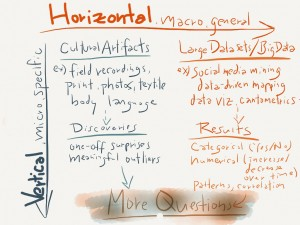 Horizontal . macro . general
Vertical . micro . specific
Cultural Artifacts
ex) field recordings,
print, photos, textile
body language
Discoveries
one-off surprises
meaningful outliers
Large Datasets / Big Data
ex) social media mining
data-driven mapping
data viz, cantometrics
Results
Categorical (Yes/No)
Numerical (increase/
decrease
over time)
patterns, correlation
More Questions